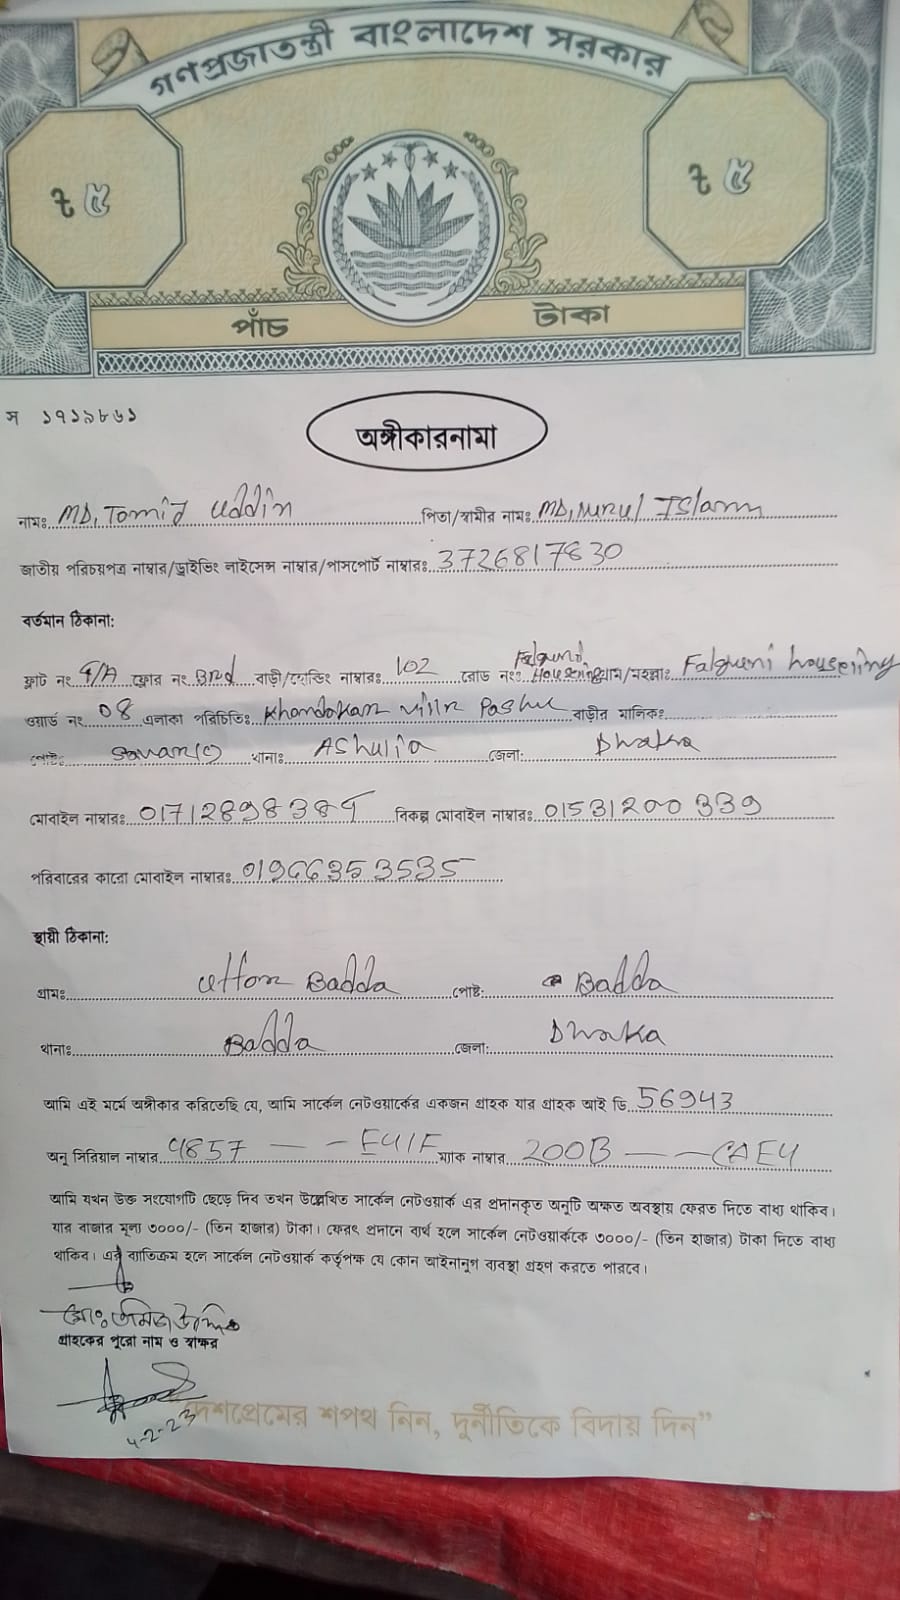 গণপ্রজাতন্ত্রী বাংলাদেশ সরকার
৳ ৫ ৳ ৫
পাঁচ টাকা
স ১৭১৯৮৬১
অঙ্গীকারনামা
নামঃ MD, Tomiz Uddin পিতা/স্বামীর নামঃ MD, Nurul Islam
জাতীয় পরিচয়পত্র নাম্বার/ড্রাইভিং লাইসেন্স নাম্বার/পাসপোর্ট নাম্বারঃ 3726817830
বর্তমান ঠিকানা:
ফ্লাট নং 4/A ফ্লোর নং 3rd বাড়ী/হোল্ডিং নাম্বারঃ 102 রোড নংঃ Falguni Housing গ্রাম/মহল্লাঃ Falguni housing
ওয়ার্ড নং 08 এলাকা পরিচিতিঃ Khandokar বাড়ীর মালিকঃ
পোষ্ট: Savar থানাঃ AShulia জেলা: Dhaka
মোবাইল নাম্বারঃ 01712898384 বিকল্প মোবাইল নাম্বারঃ 01531200339
পরিবারের কারো মোবাইল নাম্বারঃ 01966353535
স্থায়ী ঠিকানা:
গ্রামঃ Uttor Badda পোষ্ট: Badda
থানাঃ Badda জেলা: Dhaka
আমি এই মর্মে অঙ্গীকার করিতেছি যে, আমি সার্কেল নেটওয়ার্কের একজন গ্রাহক যার গ্রাহক আই ডি 56943
অনু সিরিয়াল নাম্বার 4857 — - E41F ম্যাক নাম্বার 200B — — CAE4
আমি যখন উক্ত সংযোগটি ছেড়ে দিব তখন উল্লেখিত সার্কেল নেটওয়ার্ক এর প্রদানকৃত অনুটি অক্ষত অবস্থায় ফেরত দিতে বাধ্য থাকিব।
যার বাজার মূল্য ৩০০০/- (তিন হাজার) টাকা। ফেরৎ প্রদানে ব্যর্থ হলে সার্কেল নেটওয়ার্ককে ৩০০০/- (তিন হাজার) টাকা দিতে বাধ্য
থাকিব। এর ব্যতিক্রম হলে সার্কেল নেটওয়ার্ক কর্তৃপক্ষ যে কোন আইনানুগ ব্যবস্থা গ্রহণ করতে পারবে।
মোঃ তমিজ উদ্দিন
গ্রাহকের পুরো নাম ও স্বাক্ষর
4-2-23
দেশপ্রেমের শপথ নিন, দুর্নীতিকে বিদায় দিন”